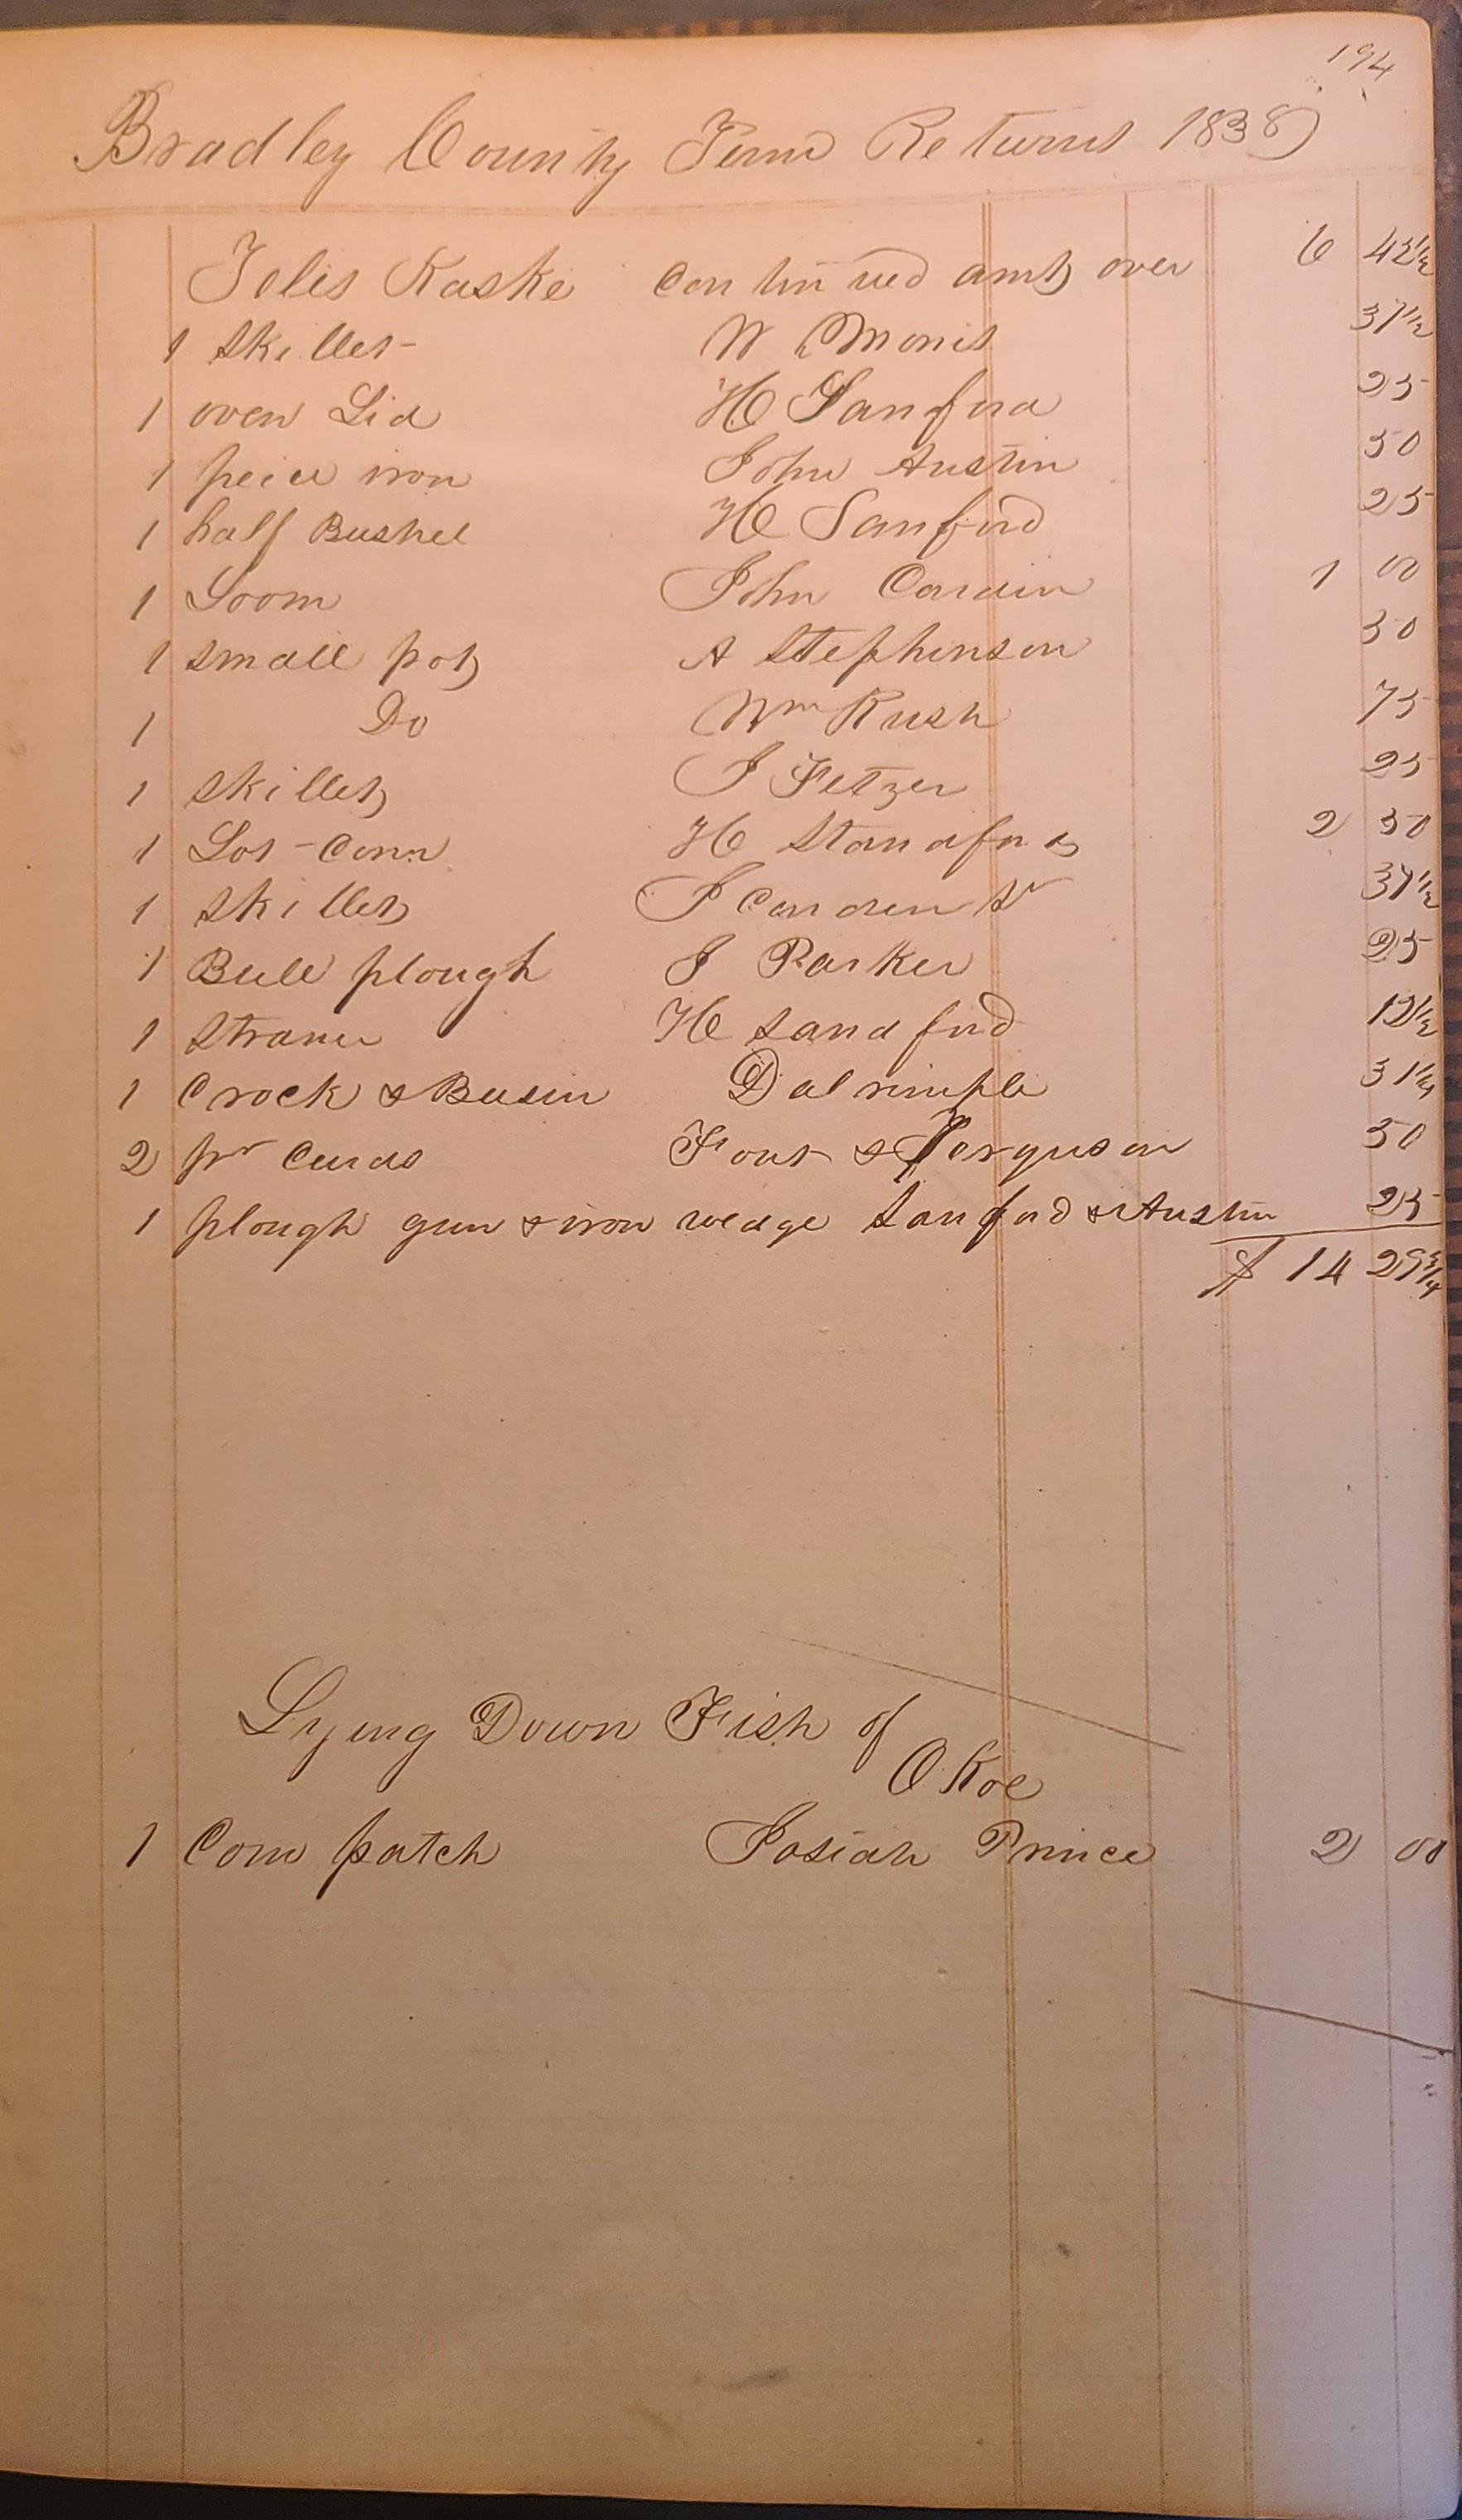 194
Bradley County Tenn Returns 1838
Jolis Kaske continued amt over 6 42 1/2
1 Skillet W Morris 37 1/2
1 oven Lid H Sanford 25
1 peice iron John Austin 50
1 half Bushel H Sanford 25
1 Loom John Cardin 1 00
1 small pot A Stephenson 50
1 Do Wm Rush 75
1 Skillet J Fetzer 25
1 Lot Corn H Standford 2 50
1 Skillet J Carden Sr 37 1/2
1 Bull plough J Parker 25
1 Straner H Sandford 12 1/2
1 Crock & Basin Dalrimple 31 1/4
2 pr Cards Fout & Ferguson 50
1 plough gun & iron wedge Sanford & Austin 25
$ 14 29 3/4
Lying Down Fish of
O.Koe
1 Corn patch Josiah Prince 2 00